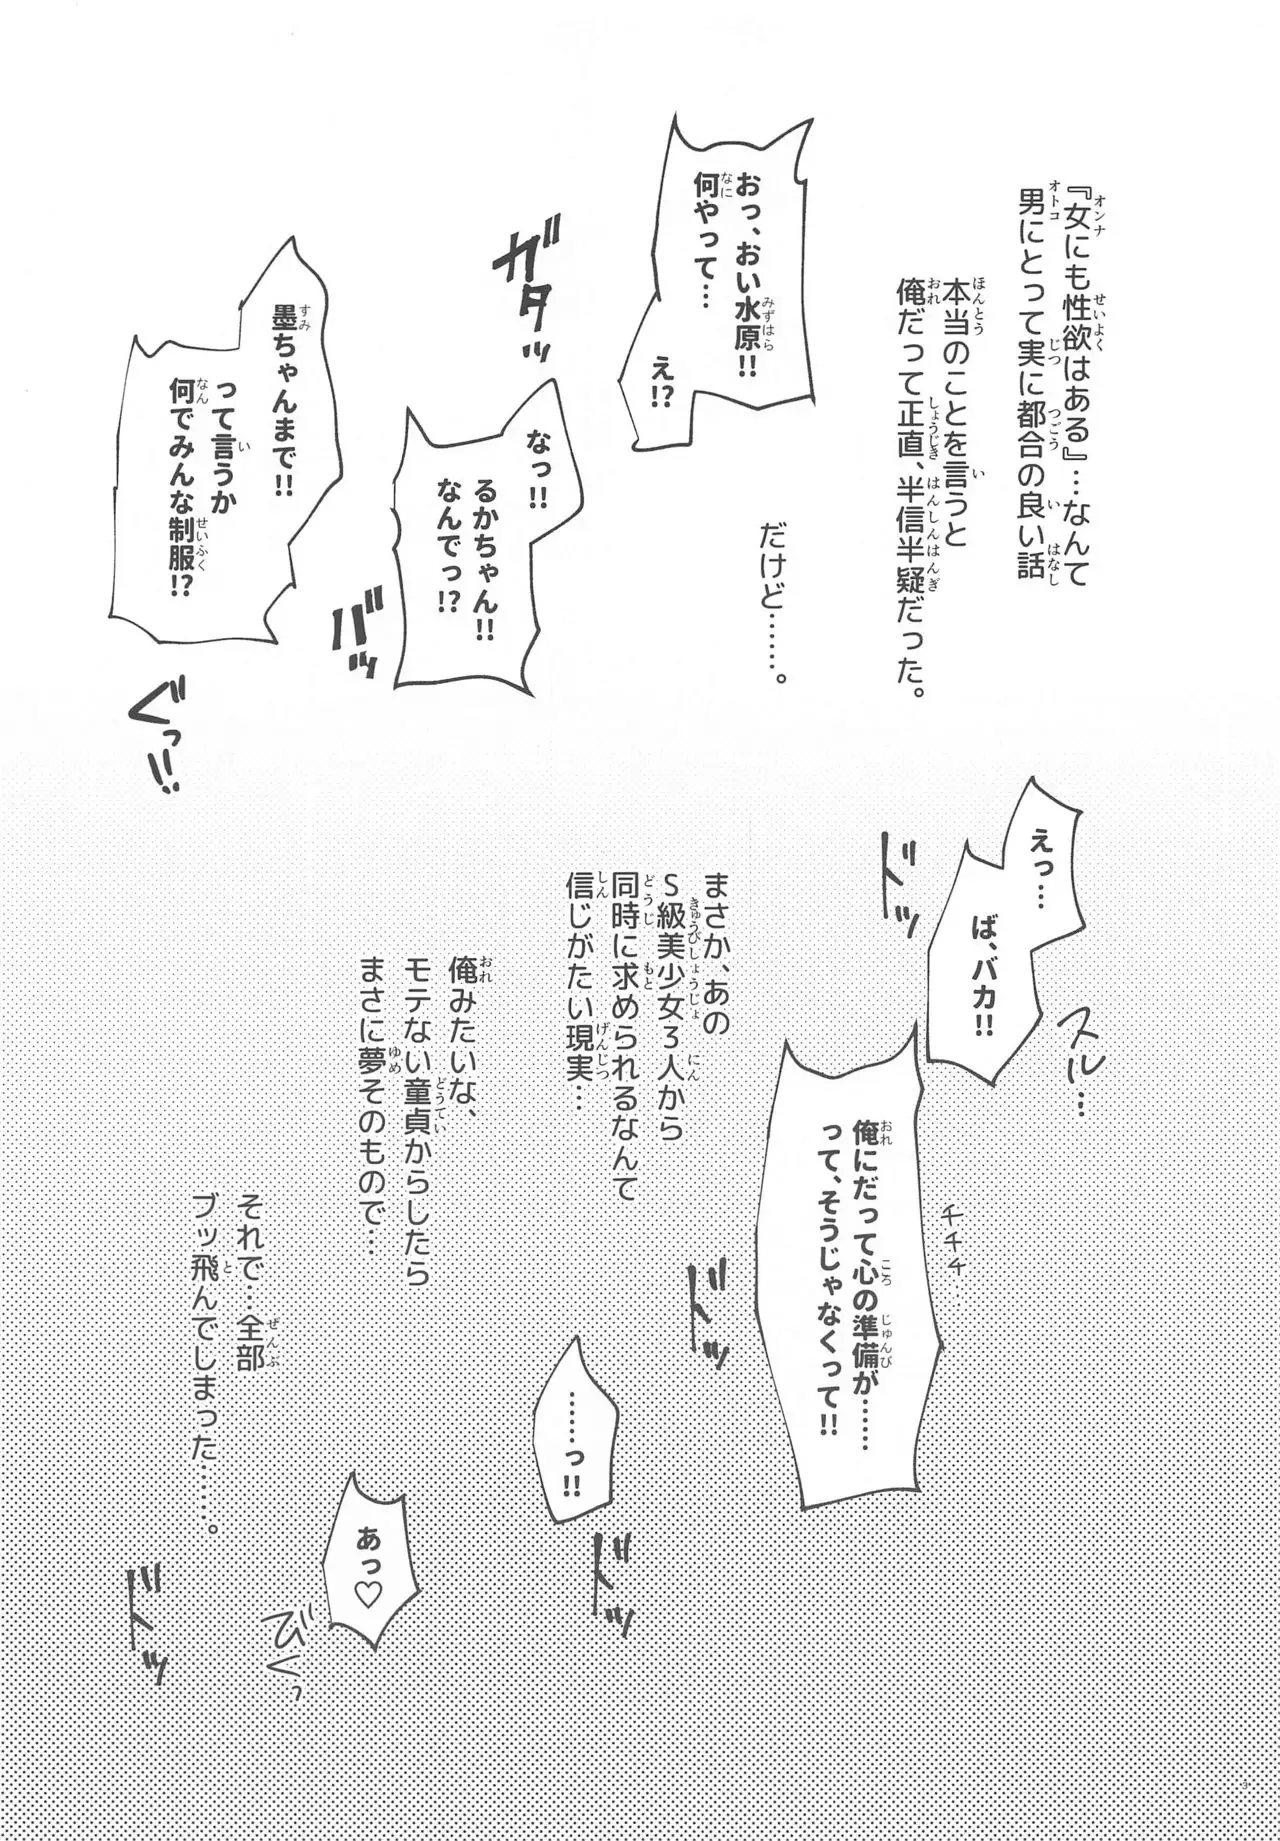 『女にも性欲はある』…なんて
男にとって実に都合の良い話
本当のことを言うと
俺だって正直、半信半疑だった。
だけど……。
おっ、おい水原!!
何やって…
え!?
ガタッ
なっ!!
るかちゃん!!
なんでっ!?
バッ
墨ちゃんまで!!
って言うか
何でみんな制服!?
ぐっ!!
えっ…
ば、バカ!!
ドッ
スル…
俺にだって心の準備が……
って、そうじゃなくって!!
チチチ…
まさか、あの
S級美少女3人から
同時に求められるなんて
信じがたい現実…
ドッ
……っ!!
ドッ
俺みたいな、
モテない童貞からしたら
まさに夢そのもので…
あっ♡
びくっ
それで…全部
ブッ飛んでしまった……。
ドッ